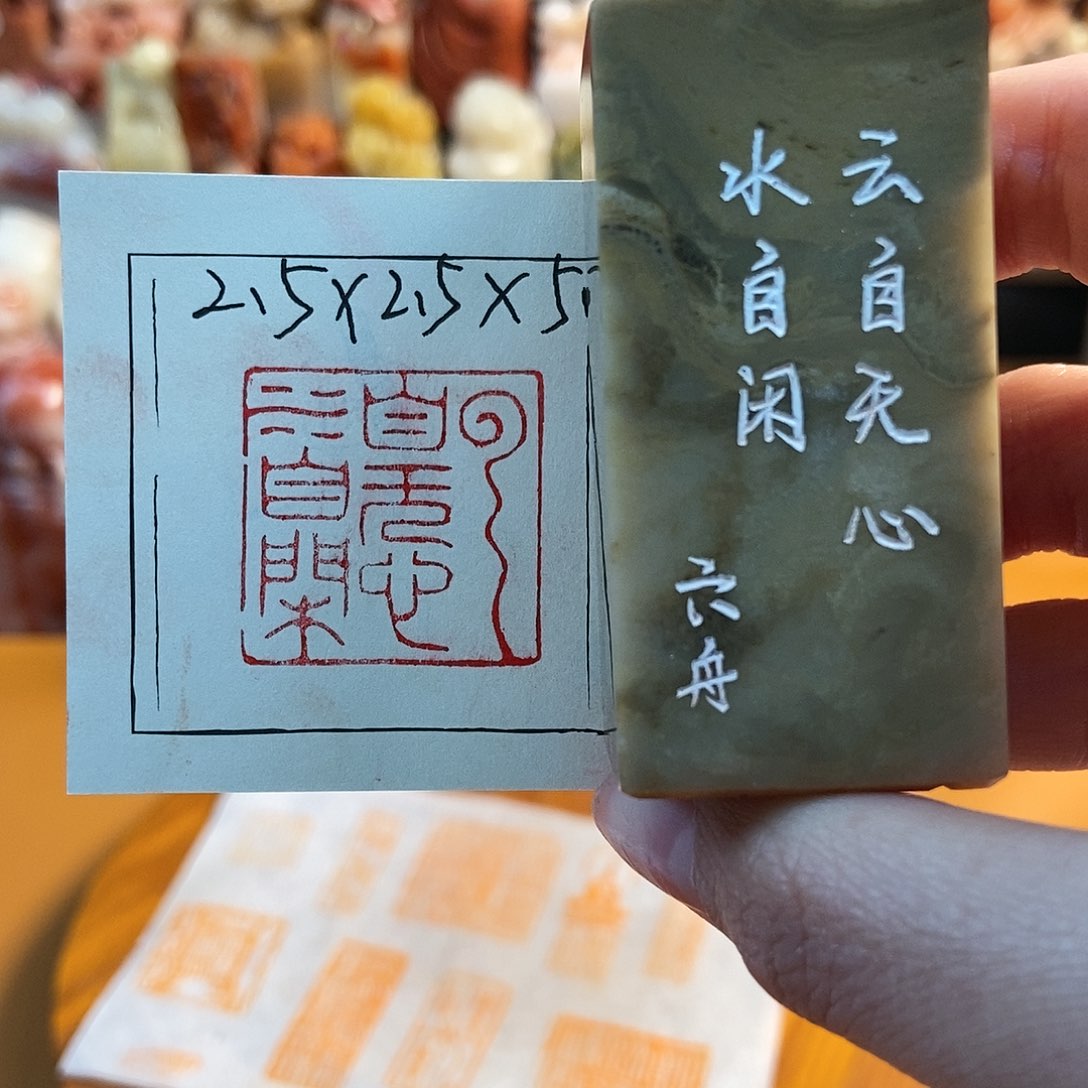 2.5X2.5X5
云
自无心
水自閑
云自无心
水自闲
六舟